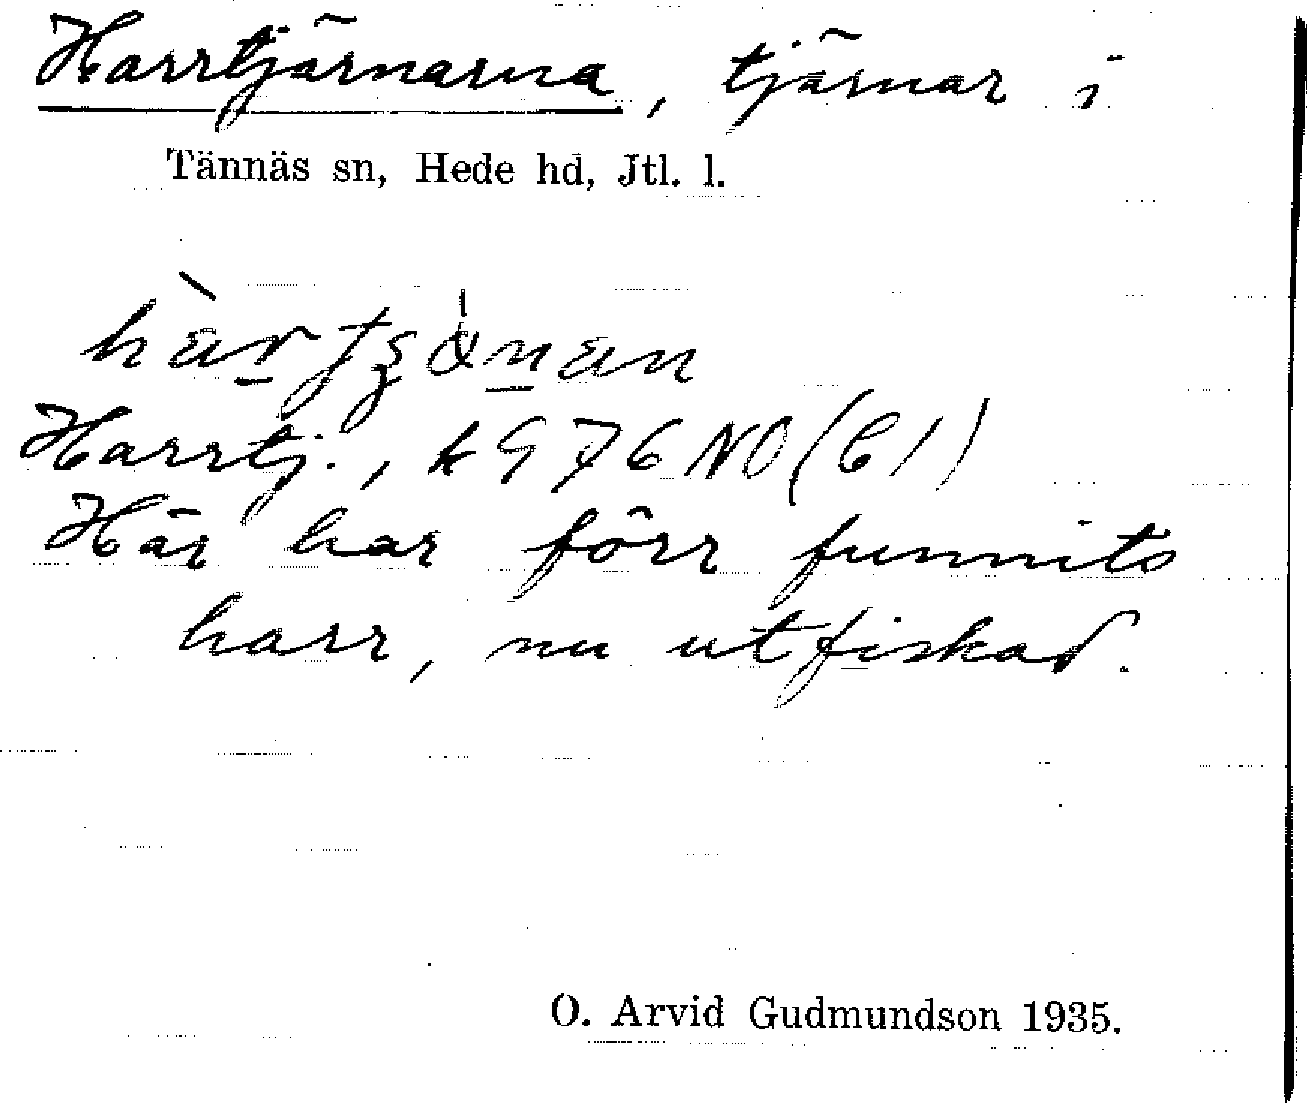 Harrtjärnarna, tjärnar i
Tännäs sn, Hede hd, Jtl. l.
Harrtj., k 976 NO (C1)
Här har förr funnits
harr, nu utfiskad.
O. Arvid Gudmundson 1935.